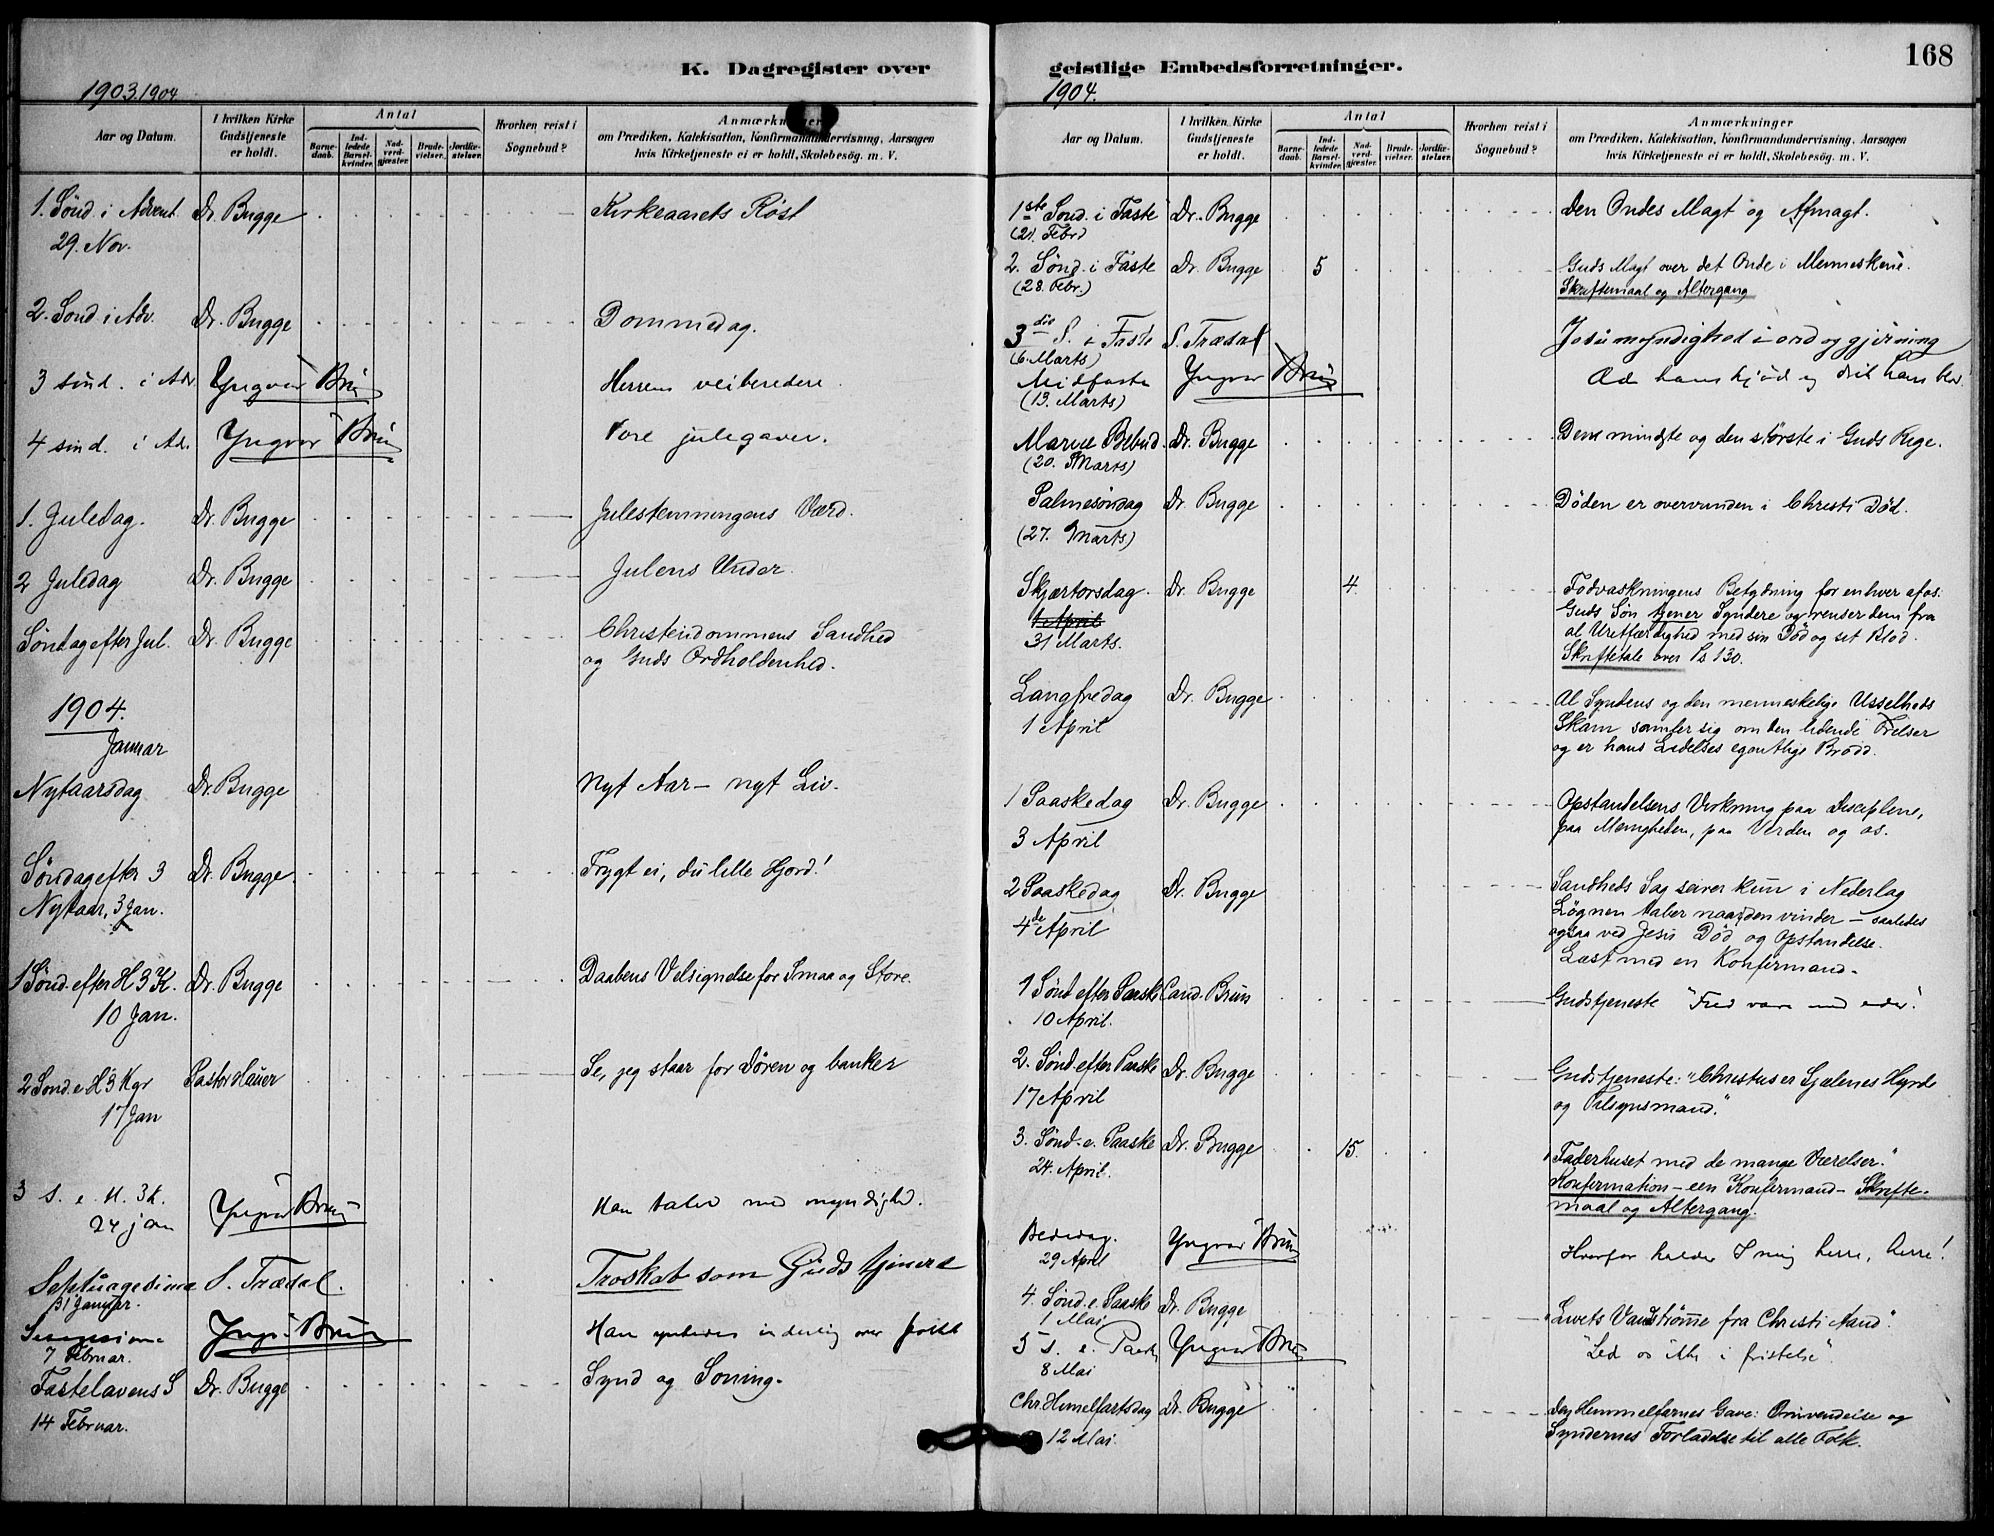 168
K. Dagregister over geistlige Embedsforretninger.
1903.1904
Aar og Datum.
I hvilken Kirke
Gudstjeneste
er holdt.
Antal
Barne-
daab.
Ind-
ledede
Barsel-
kvinder.
Nad-
verd-
gjæster.
Brude-
vielser.
Jordfæ-
stelser.
Hvorhen reist i
Sognebud?
Anmærkninger
om Prædiken, Katekisation, Konfirmandundervisning, Aarsagen
hvis Kirketjeneste ei er holdt, Skolebesøg. m. V.
1. Sönd. i Advent Dr. Bugge Kirkeaarets Röst
29. Nov.
2. Sönd. i Adv. Dr. Bugge Dommedag.
3 sönd. i Adv. Yngvar Brun Herrens veiberedere.
4 sönd. i Adv. Yngvar Brun Vore julegaver.
1. Juledag. Dr. Bugge Julestemningens Værd.
2 Juledag Dr. Bugge Julens Under.
Söndag efter Jul. Dr. Bugge Christendommens Sandhed
og Guds Ordholdenhed.
1904.
Januar
Nytaarsdag Dr. Bugge Nyt Aar – nyt Liv.
Söndag efter 3 Dr. Bugge Frygt ei, du lille Hjord!
Nytaar, 3 Jan.
1 Sönd. efter H 3 K. Dr. Bugge Daabens Velsignelse for Smaa og Store.
10 Jan.
2 Sönd. e. H 3 Kgr Pastor Hauer Se, jeg staar for Dören og banker
17 Jan
3 s. e. H. 3 K. Yngvar Brun Han taler med myndighed.
24 jan
Septuagesima S. Trædal. Troskab som Guds tjenere
31 Januar.
Yngvar Brun Han ynkedes inderlig over folket
7 Februar.
Fastelavens S Dr. Bugge Synd og Soning.
14 Februar.
1904.
Aar og Datum.
I hvilken Kirke
Gudstjeneste
er holdt.
Antal
Barne-
daab.
Ind-
ledede
Barsel-
kvinder.
Nad-
verd-
gjæster.
Brude-
vielser.
Jordfæ-
stelser.
Hvorhen reist i
Sognebud?
Anmærkninger
om Prædiken, Katekisation, Konfirmandundervisning, Aarsagen
hvis Kirketjeneste ei er holdt, Skolebesøg. m. V.
1ste Sönd. i Faste Dr. Bugge Den Ondes Magt og Afmagt.
(21. Febr)
2. Sönd. i Faste Dr. Bugge 5 Guds Magt over det Onde i Menneskene.
(28. Febr.) Skriftemaal og Altergang
3die S. i Faste S. Trædal Jesu myndighed i ord og gjerning
(6. Marts)
Midfaste Yngvar Brun Æd hans kjød og drik hans blod.
(13. Marts)
Mariæ Bebud. Dr. Bugge Den mindste og den störste i Guds Rige.
(20. Marts)
Palmesöndag Dr. Bugge Döden er overvunden i Christi Död.
(27. Marts)
Skjærtorsdag. Dr. Bugge 4. Fodvaskningens Betydning for enhver af os.
1 April Guds Sön tjener Syndere og renser dem fra
31 Marts. al Uretfærdighed med sin Död og sit Blod.
Skriftetale over Ps. 130.
Langfredag Dr. Bugge Al Syndens og den menneskelige Usselheds
1 April Skam samler sig om den lidende Frelser
og er hans Lidelses egentlige Brodd.
1 Paaskedag Dr. Bugge Opstandelsens Virkning paa Disciplene,
3 April paa Menigheden, paa Verden og os.
2 Paaskedag Dr. Bugge Sandheds Sag seirer kun i Nederlag
4de April Lögnen taber naar den vinder – saaledes
ogsaa ved Jesu Död og Opstandelse.
Læst med en Konfirmand.
1 Sönd efter Paaske Cand. Brun Gudstjeneste "Fred være med eder".
10 April.
2. Sönd efter Paaske Dr. Bugge Gudstjeneste: "Christus er Sjælenes Hyrde
17 April og Tilsynsmand."
3. Sönd. e. Paaske Dr. Bugge 15. "Faderhuset med de mange Værelser."
24. April. Konfirmation – een Konfirmand – Skrifte-
maal og Altergang.
Bededag. Yngvar Brun Hvorfor kalder I mig herre, herre!
29 April
4. Sönd. e. Paaske Dr. Bugge "Livets Vandströmme fra Christi Aand".
1 Mai
5 s. e. Paaske Yngvar Brun "Led os ikke i fristelse".
8 Mai
Chr. Himelfartsdag Dr. Bugge Den Himmelfarnes Gave: Omvendelse og
12 Mai. Syndernes Forladelse til alle Folk.